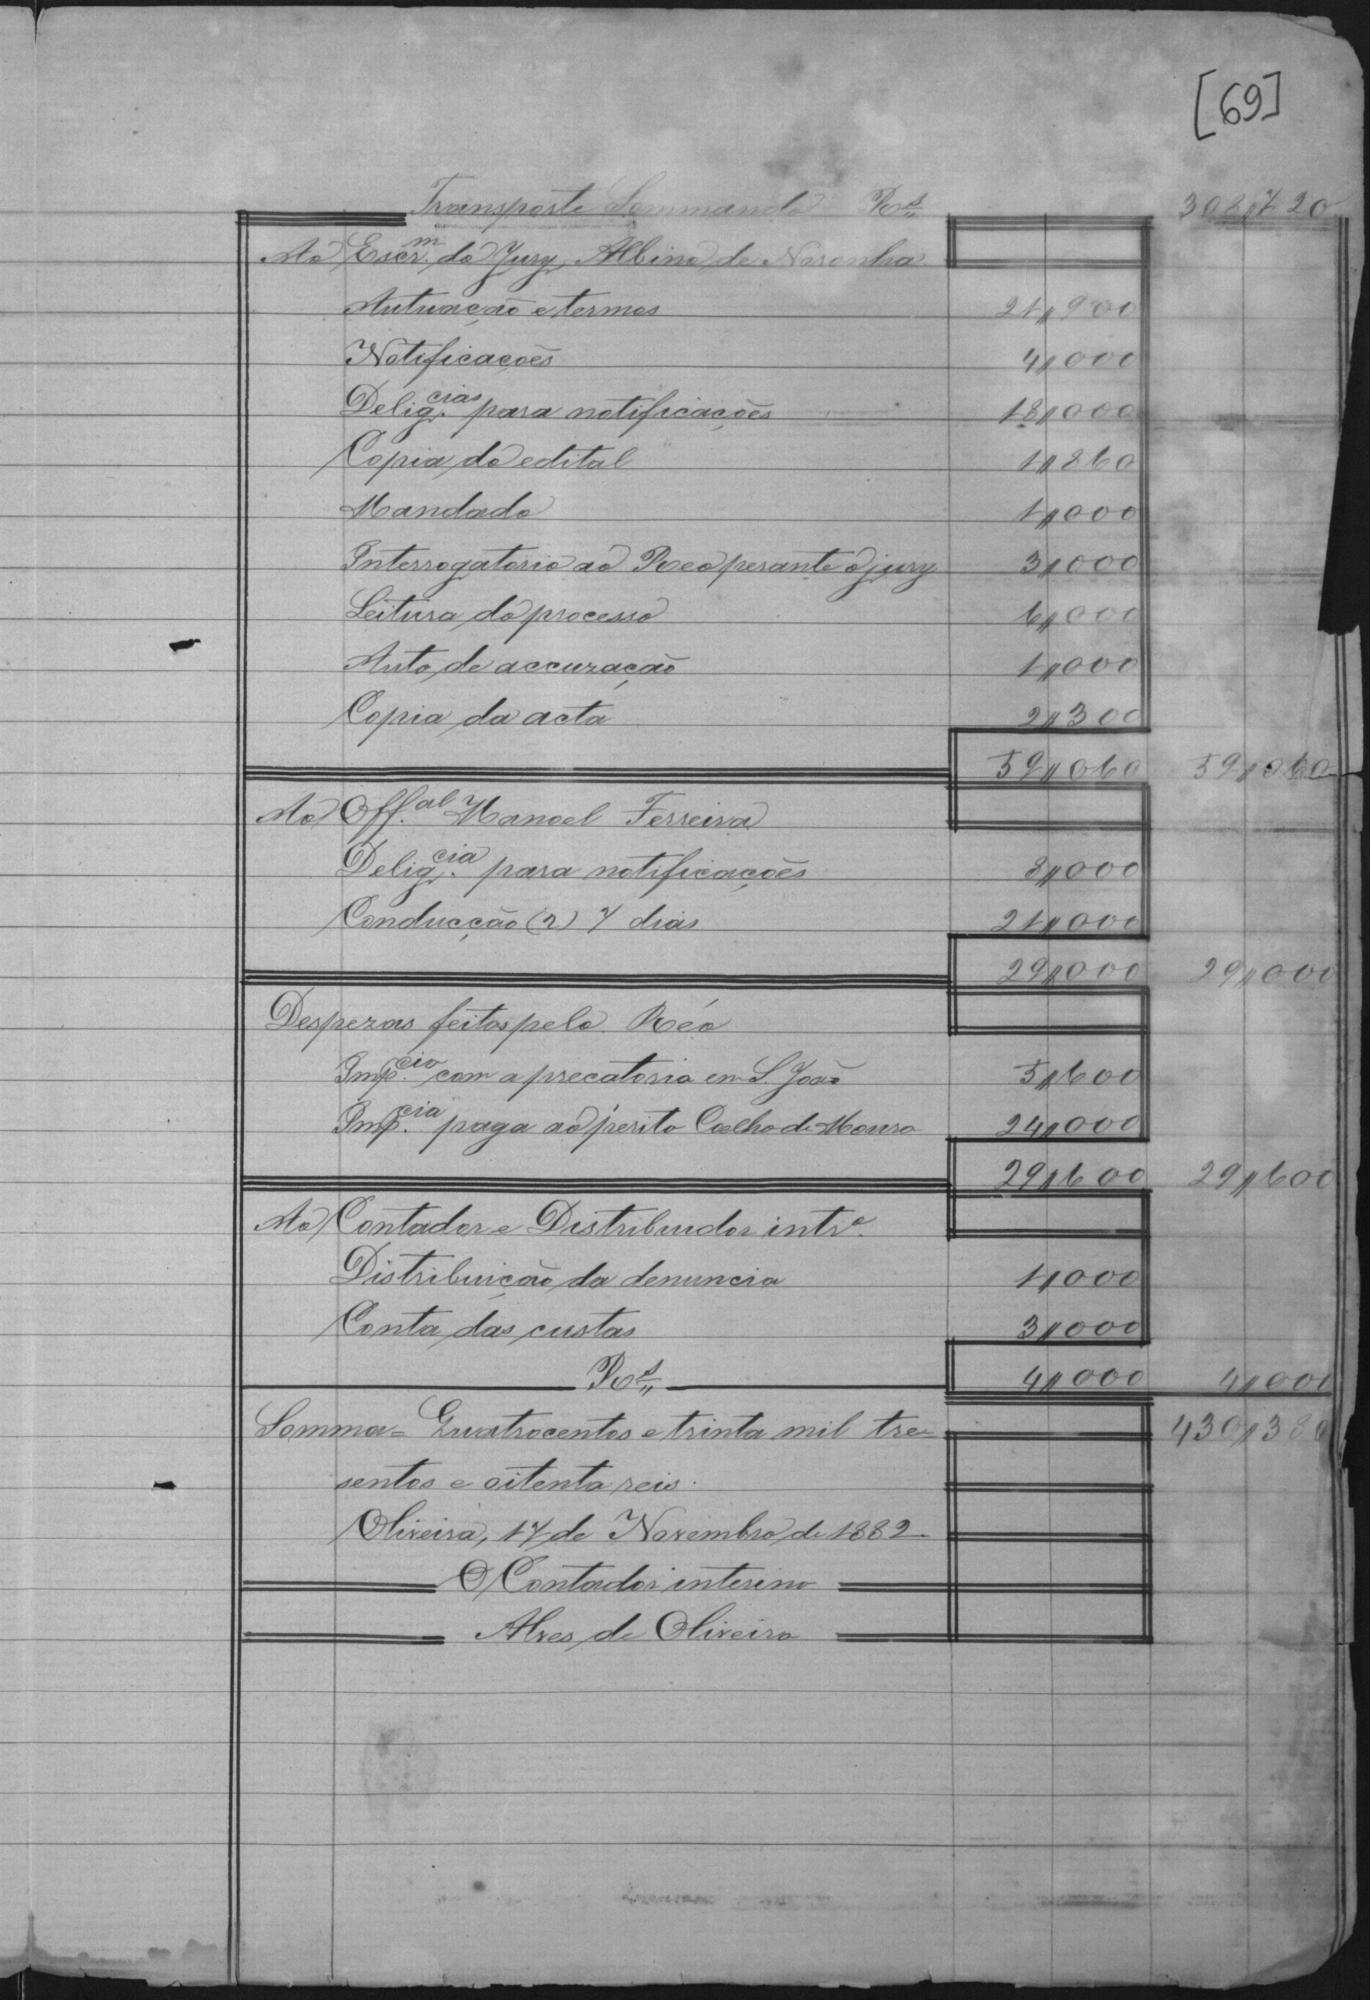 [69]
Transporte Sommando Rs 308,,720
Ao Escrm do Jury, Albino de Noronha
Autuação e termos 21,,900
Notificações 4,,000
Deligcias para notificações 18,,000
Copia do edital 1,,860
Mandado 1,,000
Interrogatorio ao Reo perante o jury 3,,000
Leitura do processo 6,,000
Auto de accuzação 1,,000
Copia da acta 2,,300
59,,060 59,,060
Ao Offal Manoel Ferreira
Deligcia para notificações 8,,000
Conducção (2) 7 dias 21,,000
29,,000 29,,000
Despezas feitas pelo Réo
Impcia com a precatoria em S. João 5,,600
Impcia paga ao perito Coelho de Moura 24,,000
29,,600 29,,600
Ao Contador e Distribuidor intro.
Distribuição da denuncia 1,,000
Conta das custas 3,,000
Rs 4,,000 4,,000
Somma = Quatrocentos e trinta mil tre= 430,,380
sentos e oitenta reis.
Oliveira, 17 de Novembro de 1882.
O Contador interino
Alves de Oliveira